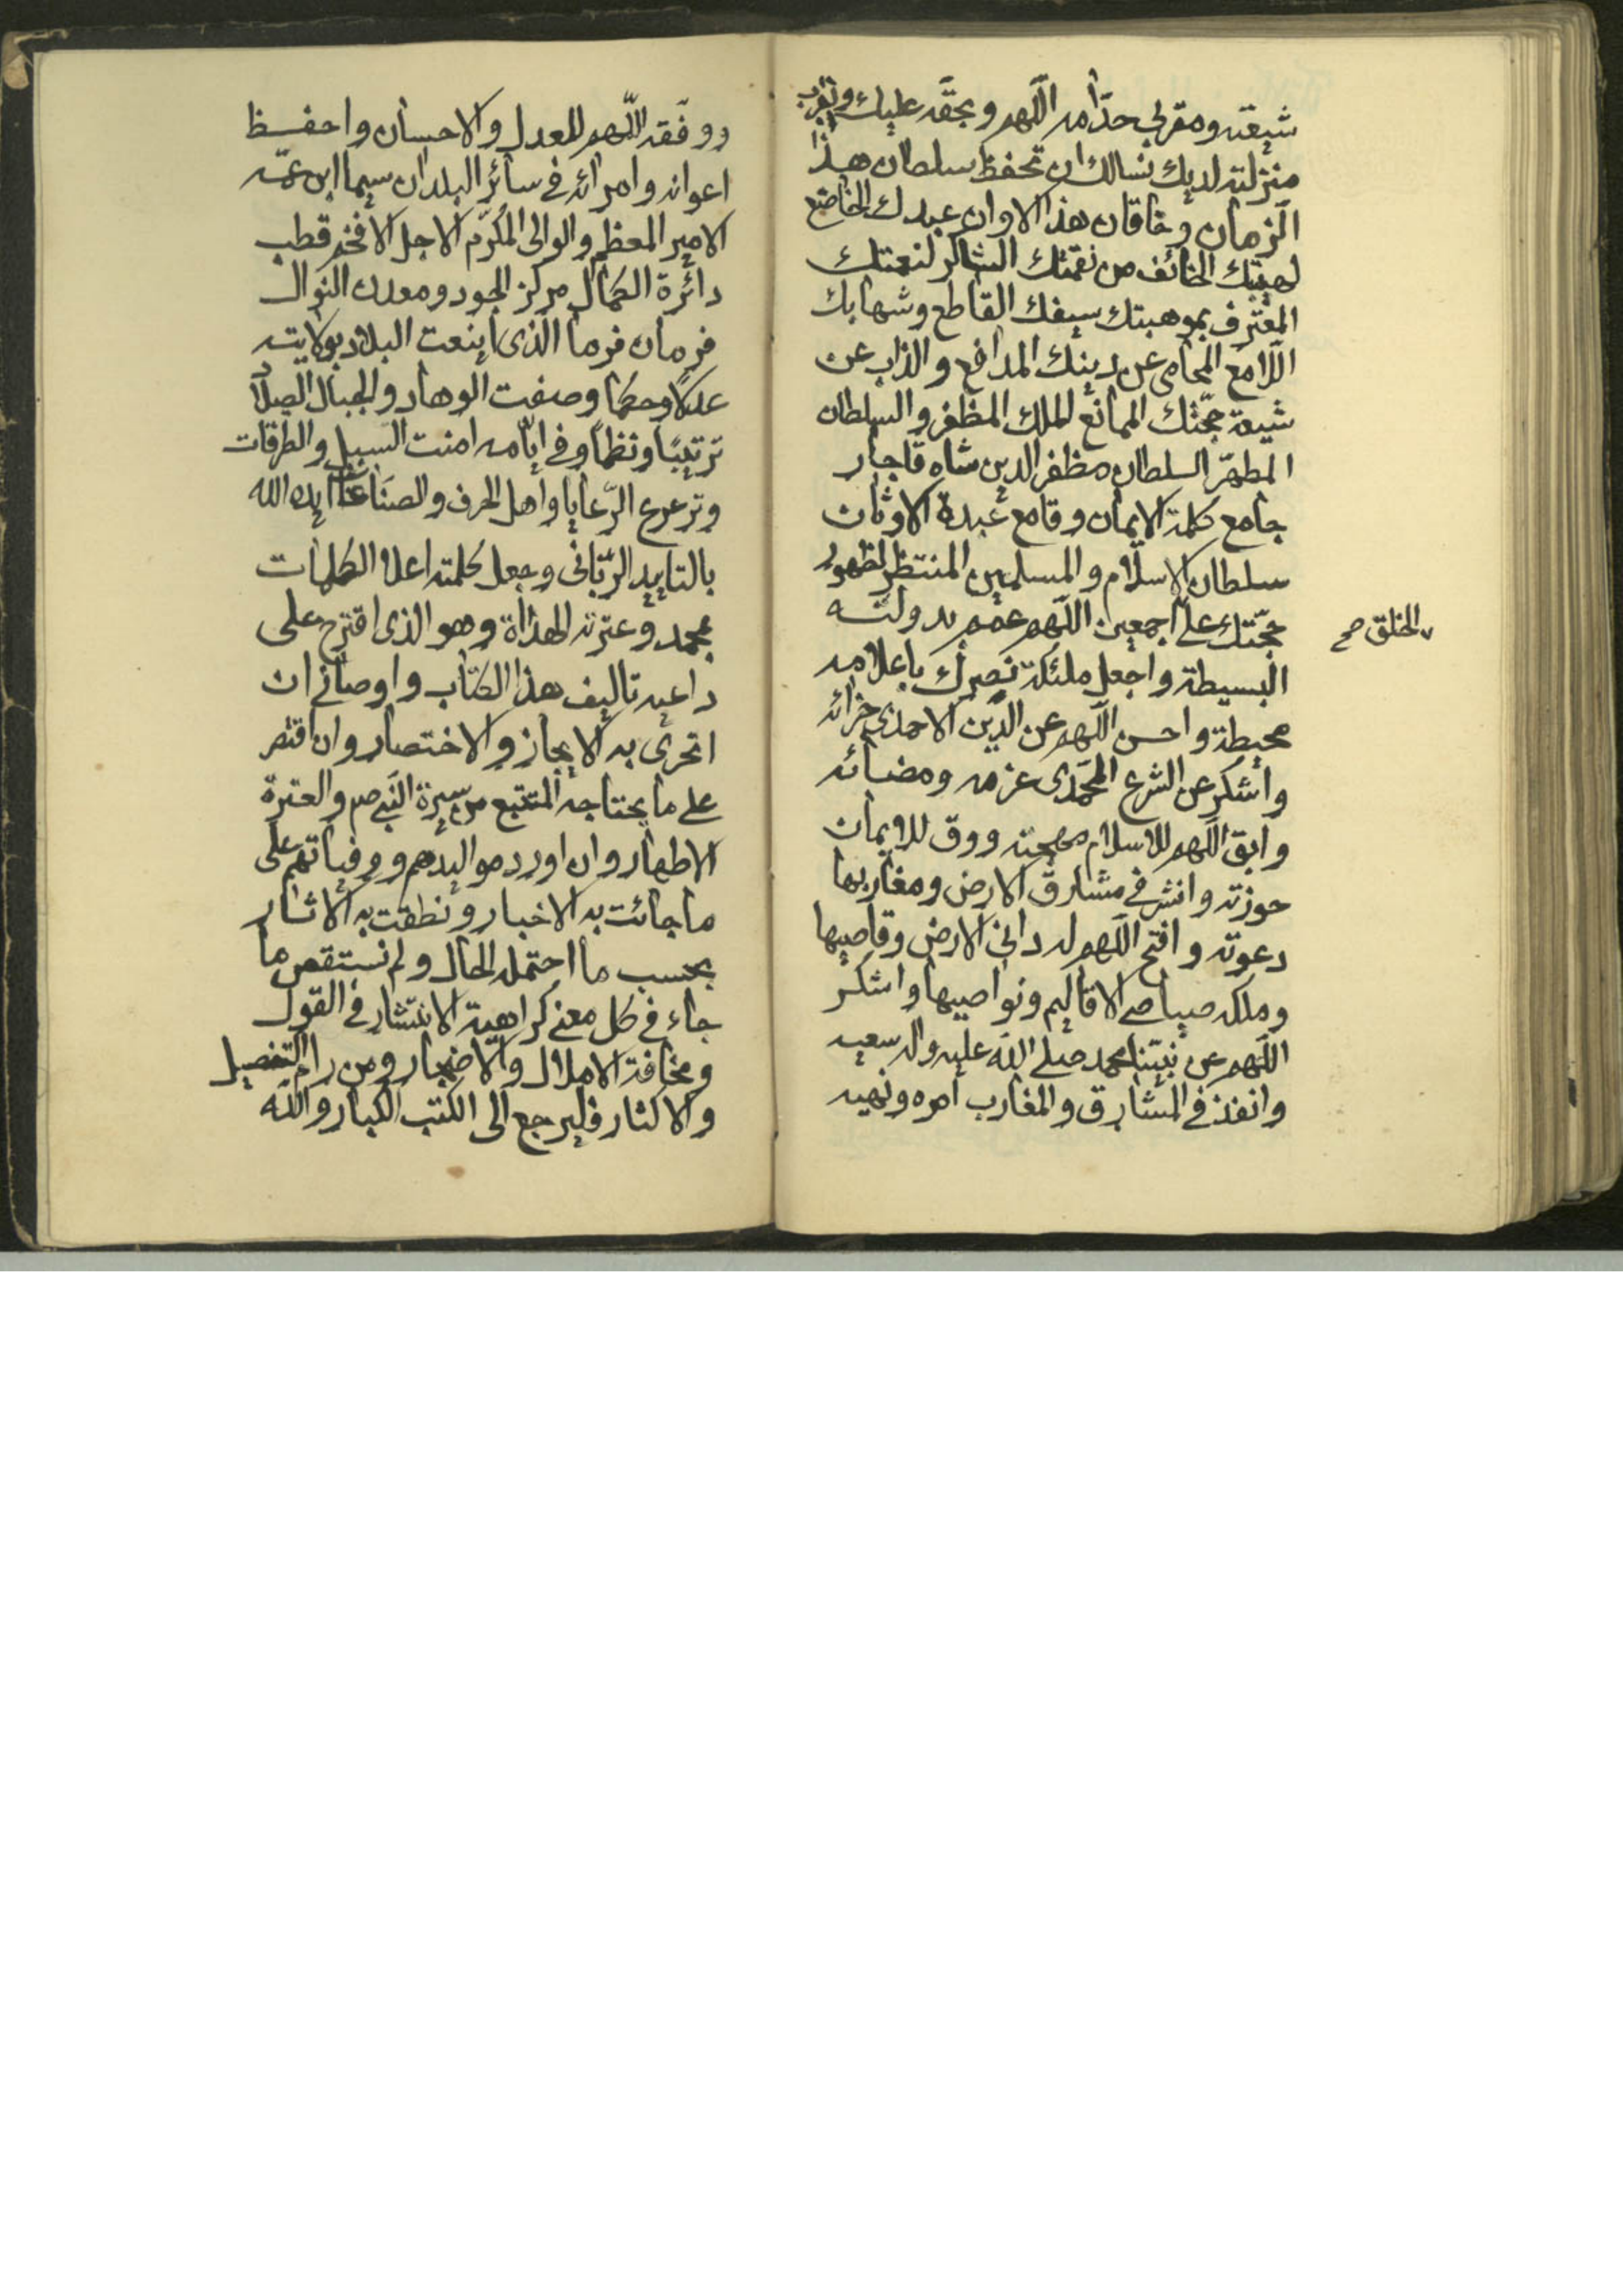 شیعته ومقربی خدّامه اللّهم وبحقّه علیك وبقرب
منزلته لدیك نسالك ان تحفظ سلطان هذا
الزمان وخاقان هذا الاوان عبدك الخاضع
لهیبتك الخائف من نقمتك الشاكر لنعمتك
المعترف بموهبتك سیفك القاطع وشهابك
اللامع المحامی عن دینك المدافع والذاب عن
شیعة حجّتك الممانع الملك المظفر والسلطان
المطهّر السلطان مظفر الدین شاه قاجار
جامع كلمة الایمان وقامع عبدة الاوثان
سلطان الاسلام والمسلمین المنتظر لظهور
حجّتك علی اجمعین اللّهم عمم بدولته
الخلق صح
البسیطة واجعل ملئكة نصرك باعلامه
محیطة واحسن اللّهم عن الدّین الاحمدی جزائه
واشكر عن الشرع المحمّدی عزمه ومضائه
وابق اللّهم للاسلام مهجته ووق للایمان
حوزته وانشر فی مشارق الارض ومغاربها
دعوته وافتح اللّهم له دانی الارض وقاصیها
وملكه صیاصی الاقالیم ونواصیها واشكر
اللّهم عن نبیّنا محمد صلی اللّه علیه واله سعیه
وانفذ فی المشارق والمغارب امره ونهیه
ووفّقه اللّهم للعدل والاحسان واحفظ
اعوانه وامرائه فی سائر البلدان سیما ابن عمّه
الامیر المعظم والوالی المكرّم الاجل الافخم قطب
دائرة الكمال مركز الجود ومعدن النوال
فرمان فرما الذی اینعت البلاد بولایته
عدلا وحكما وصفت الوهاد والجبال
ترتیبًا ونظمًا وفی ایّامه امنت السبیل والطرقات
وترعرع الرّعایا واهل الحرف والصناعات ایده الله
بالتایید الرّبّانی وجعل كلمته اعلا الكلمات
بمحمد وعترته الهداة وهو الذی اقترح علی
داعیه تالیف هذا الكتاب واوصانی ان
اتحرّی به الایجاز والاختصار وان اقتصر
علی ما یحتاجه المتتبع من سیرة النّبی ص والعترة
الاطهار وان اورد موالیدهم ووفیاتهم علی
ما جائت به الاخبار ونطقت به الاثار
بحسب ما احتمله الحال ولم نستقص ما
جاء فی كل معنی كراهیة الانتشار فی القول
ومخافة الاملال والاضجار ومن رام التفصیل
والاكثار فلیرجع الی الكتب الكبار واللّه